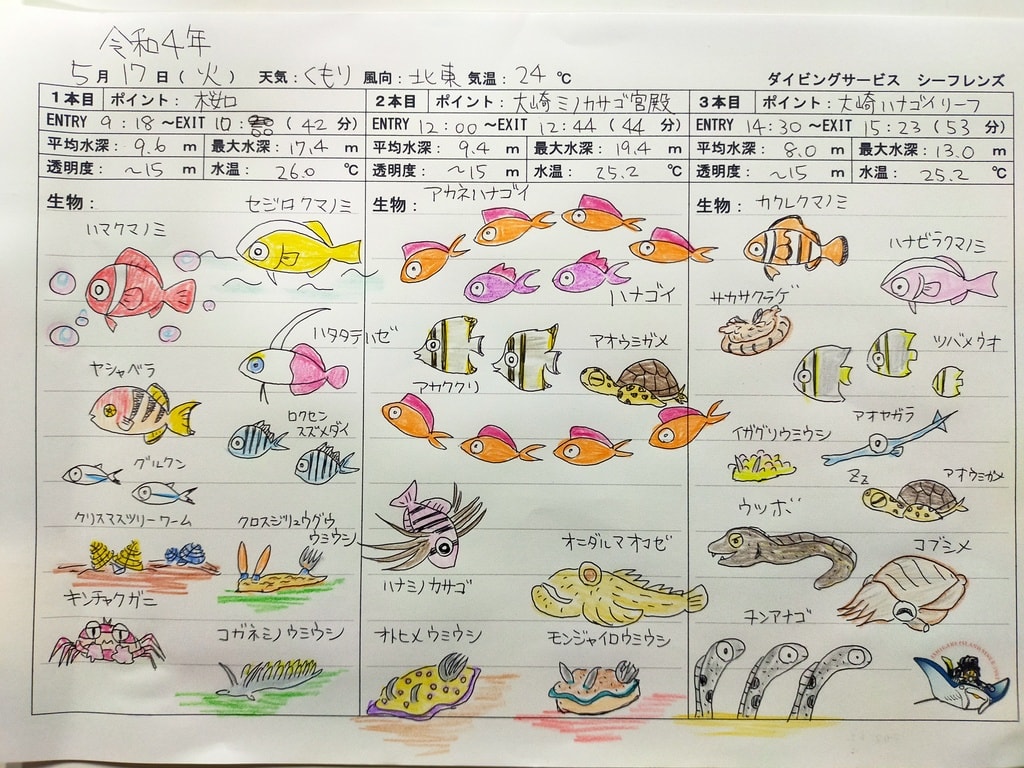 令和4年
5月17日(火) 天気:くもり 風向:北東 気温:24℃ ダイビングサービス シーフレンズ
1本目 ポイント: 桜口
ENTRY 9:18 ~EXIT 10:00 (42分)
平均水深: 9.6 m 最大水深: 17.4 m
透明度: ~15 m 水温: 26.0 ℃
生物:
セジロクマノミ
ハマクマノミ
ハタタテハゼ
ヤシャベラ
ロクセン
スズメダイ
グルクン
クリスマスツリーワーム
クロスジリュウグウ
ウミウシ
キンチャクガニ
コガネミノウミウシ
2本目 ポイント: 大崎ミノカサゴ宮殿
ENTRY 12:00 ~EXIT 12:44 (44分)
平均水深: 9.4 m 最大水深: 19.4 m
透明度: ~15 m 水温: 25.2 ℃
生物:
アカネハナゴイ
ハナゴイ
アオウミガメ
アカククリ
オニダルマオコゼ
ハナミノカサゴ
オトヒメウミウシ
モンジャイロウミウシ
3本目 ポイント: 大崎ハナゴイリーフ
ENTRY 14:30 ~EXIT 15:23 (53分)
平均水深: 8.0 m 最大水深: 13.0 m
透明度: ~15 m 水温: 25.2 ℃
生物:
カクレクマノミ
ハナビラクマノミ
サカサクラゲ
ツバメウオ
アオヤガラ
イガグリウミウシ
Zz
アオウミガメ
ウツボ
コブシメ
チンアナゴ